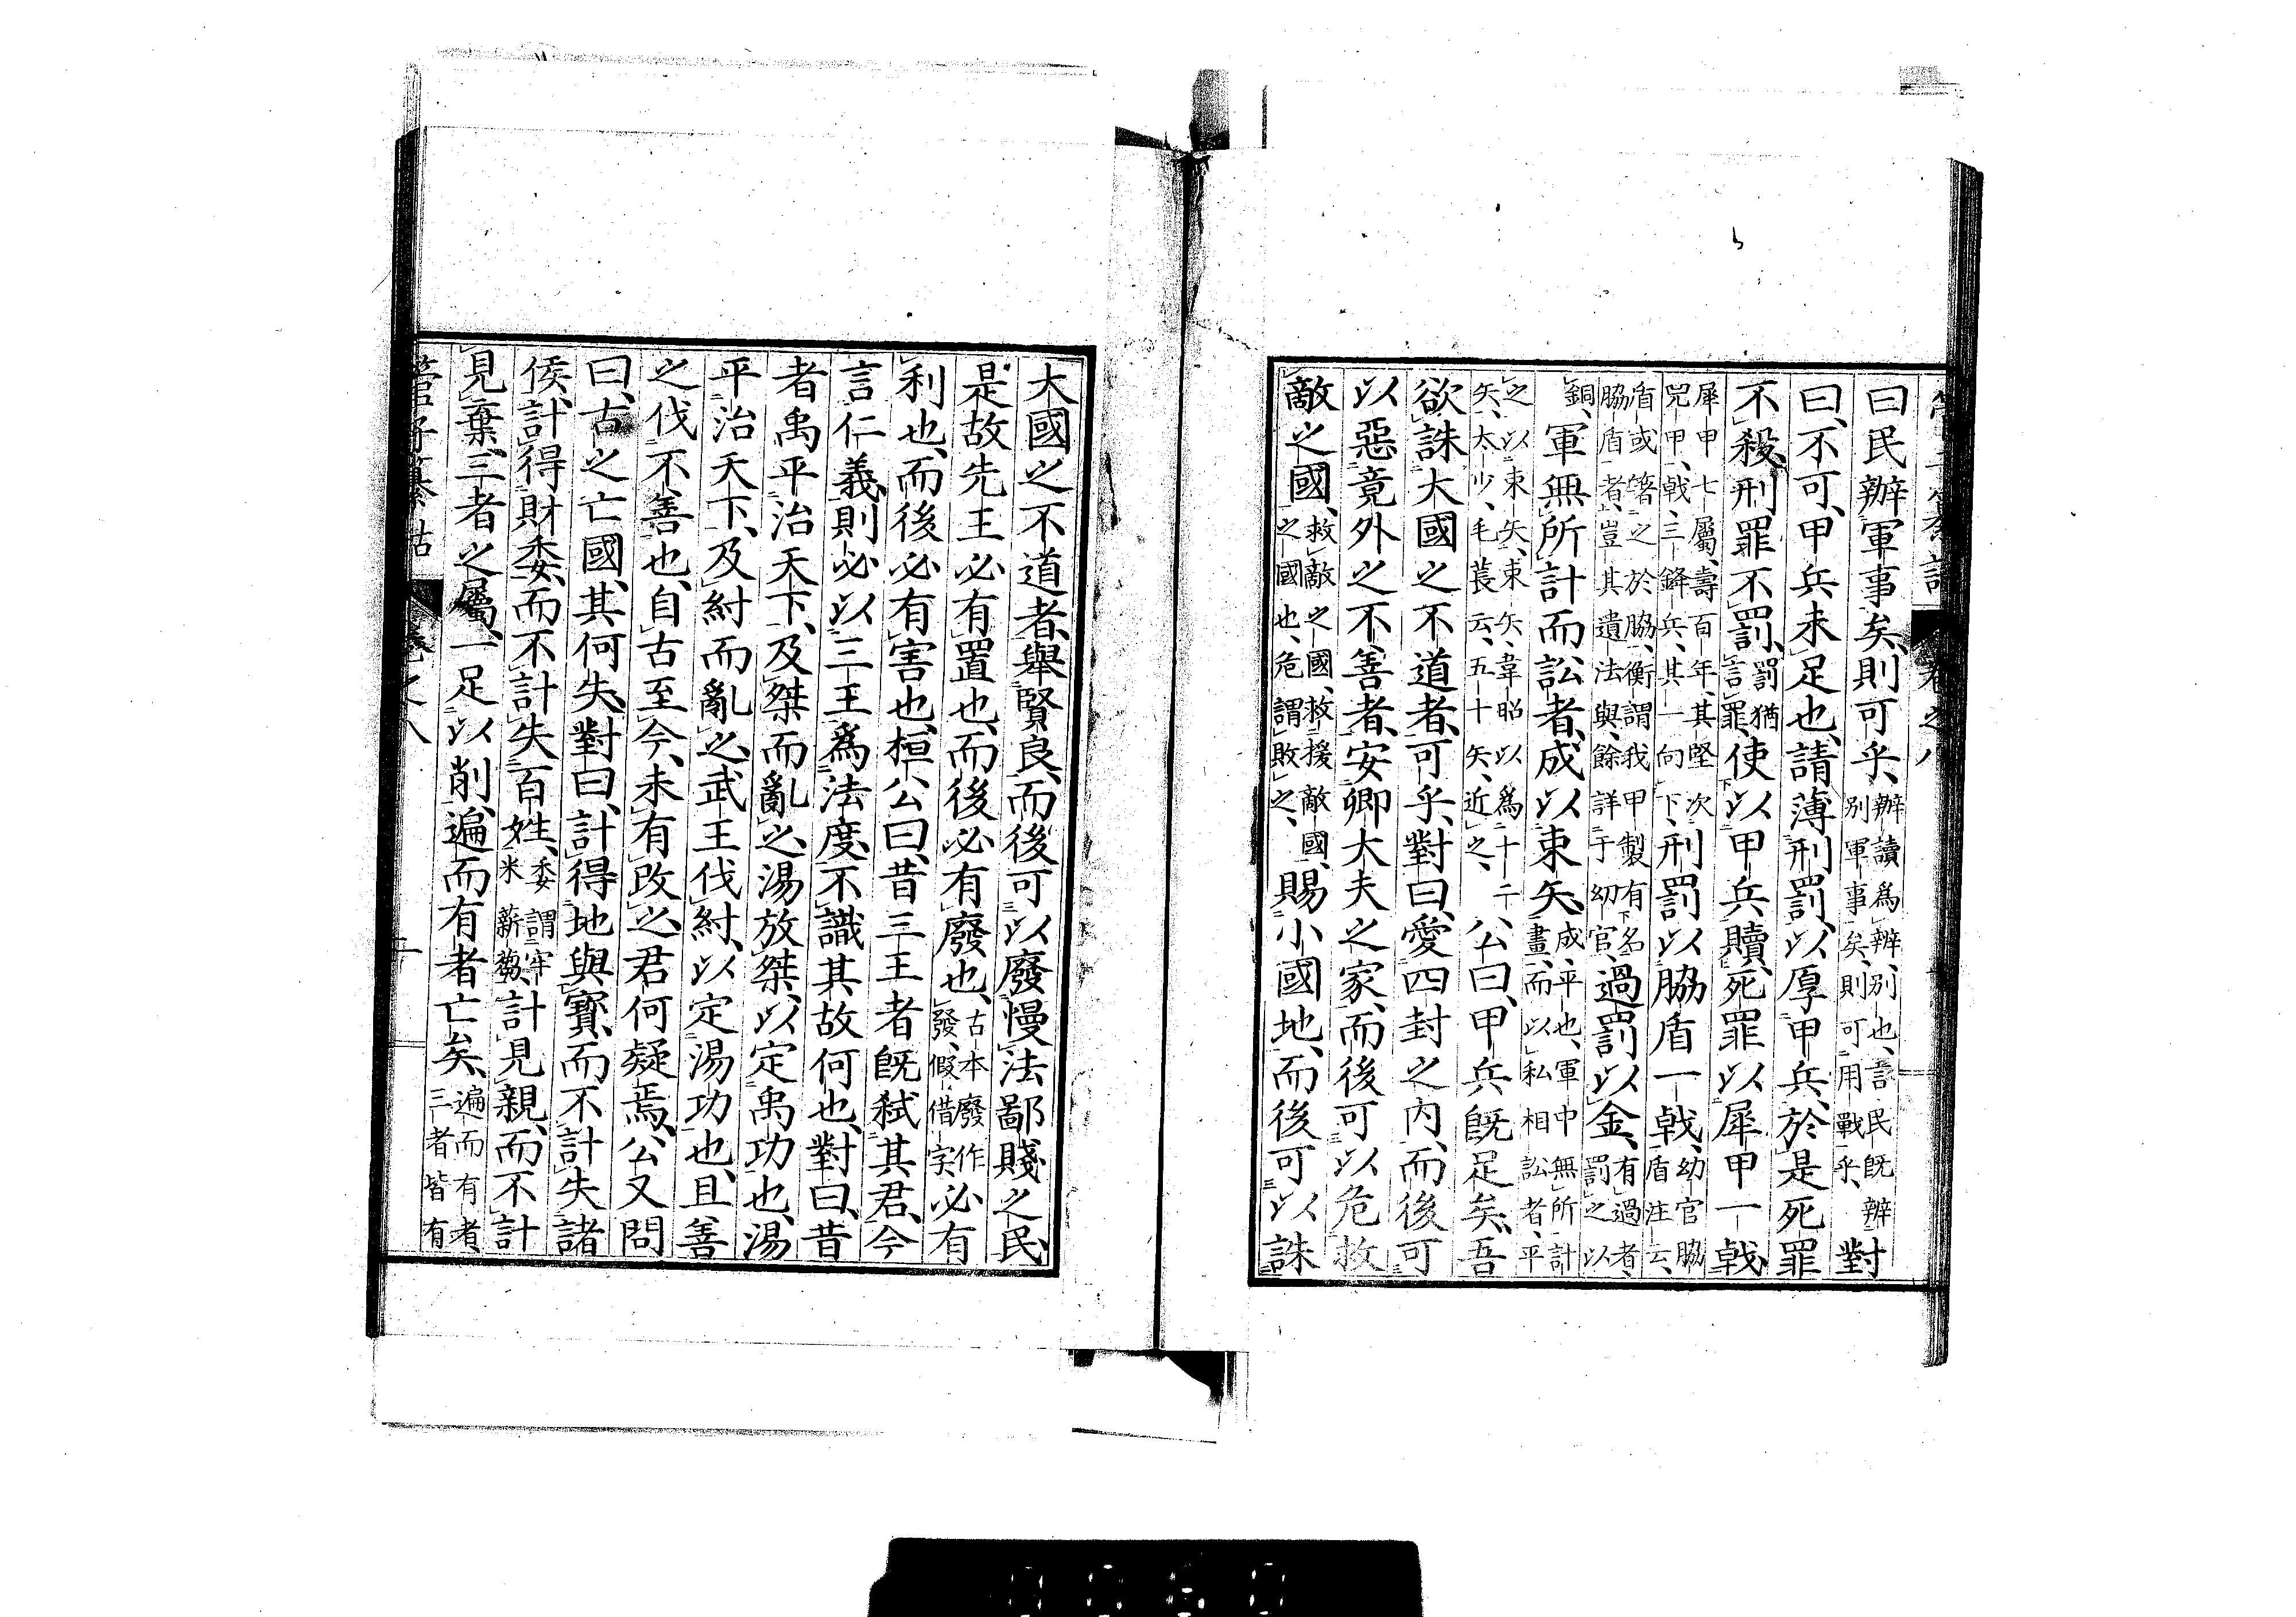 管子纂詁 卷之八
曰民辦軍事矣、則可乎、辦讀爲辨、辨、別也、言民既辨別軍事矣、則可用戰乎、對
曰、不可、甲兵未足也、請薄刑罰、以厚甲兵、於是死罪
不殺、刑罪不罰、罰猶言罪、使以甲兵贖、死罪以犀甲一戟、
犀甲七屬、壽百年、其堅次兕甲、戟、三鋒兵、其一向下、刑罰以脇盾一戟、幼官脇盾注云、
盾或箸之於脇、衡謂我甲製有名脇盾者、豈其遺法與、餘詳于幼官、過罰以金、有過者、罰之以
銅、軍無所計而訟者、成以束矢、成、平也、軍中無所計畫、而以私相訟者、平
之以束矢、束矢、韋昭以爲十二矢、太少、毛萇云、五十矢、近之、公曰、甲兵既足矣、吾
欲誅大國之不道者、可乎、對曰、愛四封之內、而後可
以惡竟外之不善者、安卿大夫之家、而後可以危救
敵之國、救敵之國、救援敵國之國也、危謂敗之、賜小國地、而後可以誅
大國之不道者、舉賢良、而後可以廢慢法鄙賤之民、
是故先王必有置也、而後必有廢也、古本廢作發、假借字、必有
利也、而後必有害也、桓公曰、昔三王者既弒其君、今
言仁義、則必以三王爲法度、不識其故何也、對曰、昔
者禹平治天下、及桀而亂之、湯放桀、以定禹功也、湯
平治天下、及紂而亂之、武王伐紂、以定湯功也、且善
之伐不善也、自古至今、未有改之、君何疑焉、公又問
曰、古之亡國、其何失、對曰、計得地與寶、而不計失諸
侯、計得財委、而不計失百姓、委謂牢米薪芻、計見親、而不計
見棄、三者之屬、一足以削、遍而有者亡矣、遍而有者、三者皆有
管子纂詁 卷之八